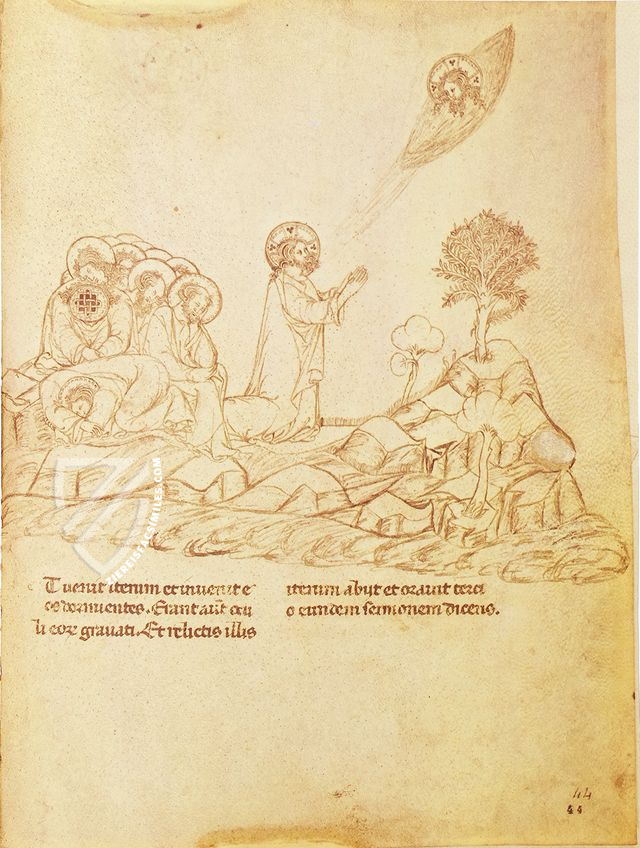 T venit iterum et invenit e
os dormientes. Erant aut̄ ocu
li eoꝝ gravati. Et relictis illis
iterum abijt et oravit terci
o eundem sermonem dicens.
44
44
ZIEREISFACSIMILES.COM